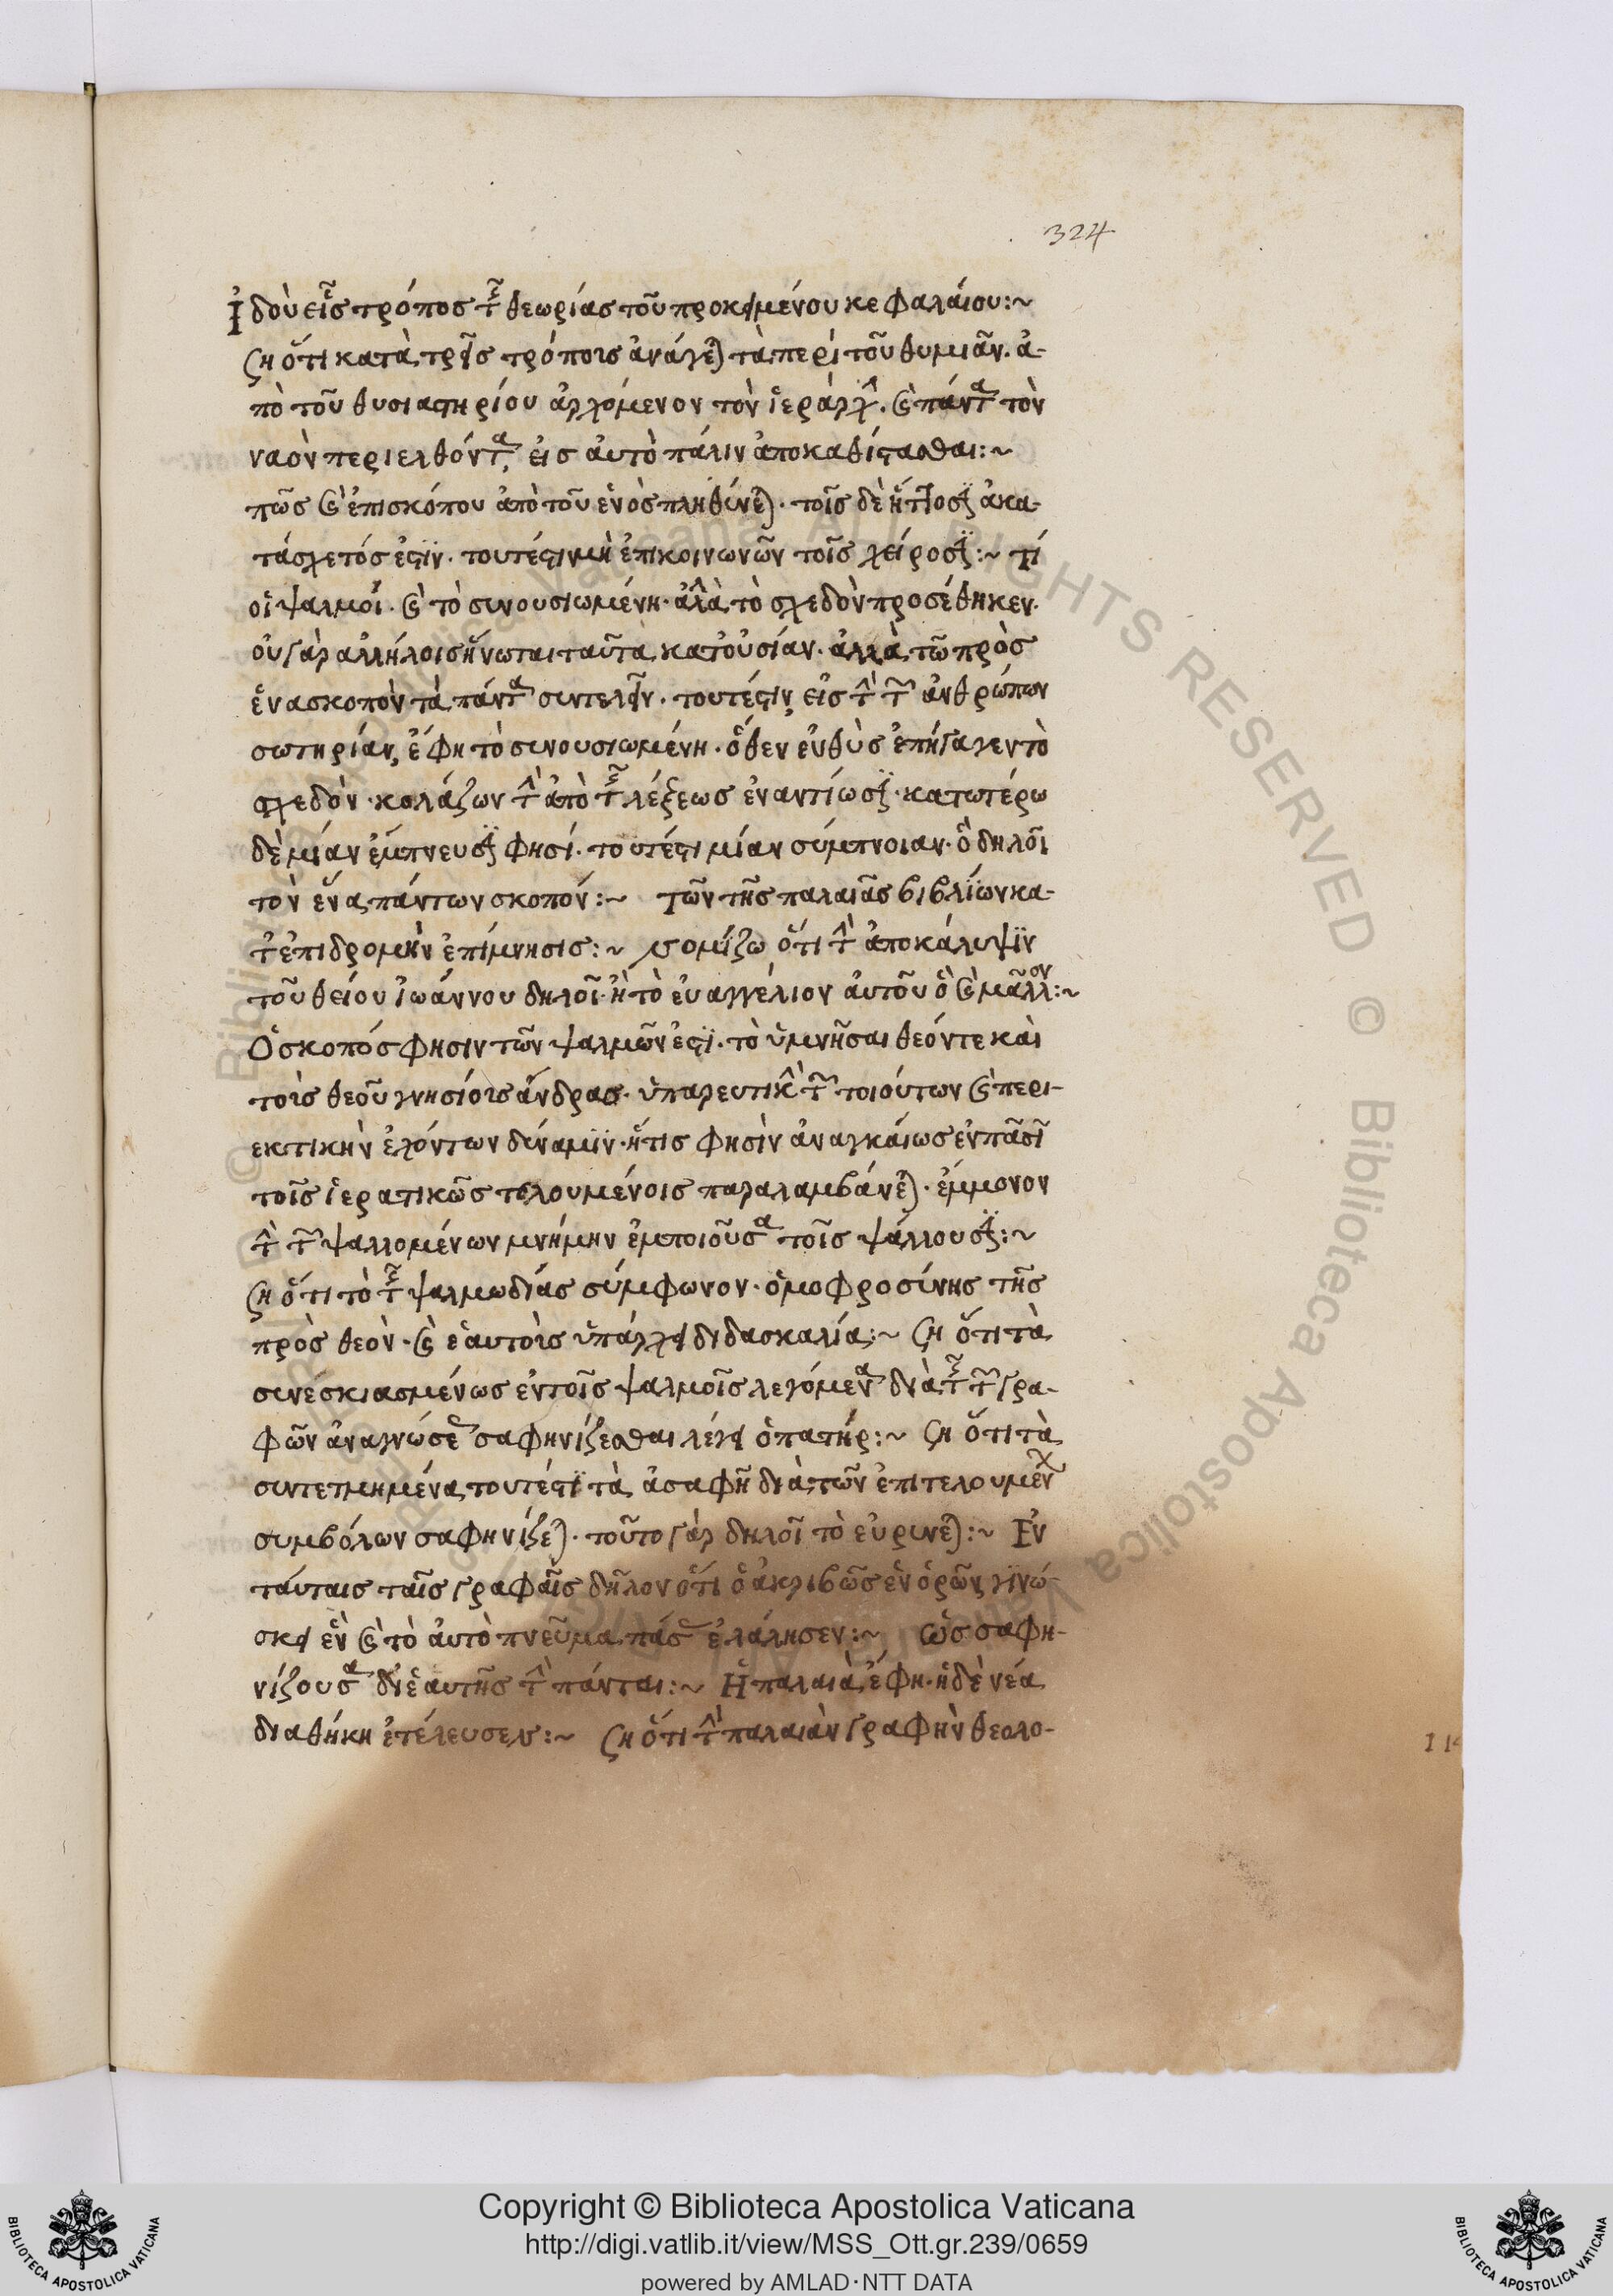 324
Ἰδοὺ εἷς τρόπος τῆς θεωρίας τοῦ προκειμένου κεφαλαίου:~
ση ὅτι κατὰ τρεῖς τρόπους ἀνάγεται τὰ περὶ τοῦ θυμιᾶν. ἀ-
πὸ τοῦ θυσιαστηρίου ἀρχόμενον τὸν ἱεράρχην. καὶ πάντα τὸν
ναὸν περιελθόντα, εἰς αὐτὸ πάλιν ἀποκαθίστασθαι:~
πῶς καὶ ἐπισκόπου ἀπὸ τοῦ ἑνὸς πληθύνεται. τοῖς δὲ ἥττοσιν ἀκα-
τάσχετός ἐστιν. τουτέστιν μὴ ἐπικοινωνῶν τοῖς χείροσιν:~ τί
οἱ ψαλμοί. καὶ τὸ συνουσιωμένη. ἀλλὰ τὸ σχεδὸν προσέθηκεν.
οὐ γὰρ ἀλλήλοις ἥνωται ταῦτα κατ' οὐσίαν. ἀλλὰ τῶ πρὸς
ἕνα σκοπὸν τὰ πάντα συντελεῖν. τουτέστιν, εἰς τὴν τῶν ἀνθρώπων
σωτηρίαν, ἔφη τὸ συνουσιωμένη. ὅθεν εὐθὺς ἐπήγαγεν τὸ
σχεδὸν. κολάζων τὴν ἀπὸ τῆς λέξεως ἐναντίωσιν. κατωτέρω
δὲ μίαν ἔμπνευσιν φησί. τουτέστι μίαν σύμπνοιαν. ὃ δηλοῖ
τὸν ἕνα πάντων σκοπόν:~ Τῶν τῆς παλαιᾶς βιβλίων κα-
τ' ἐπιδρομὴν ἐπίμνησις:~ νομίζω ὅτι τὴν ἀποκάλυψιν
τοῦ θείου Ἰωάννου δηλοῖ. ἢ τὸ εὐαγγέλιον αὐτοῦ ὃ καὶ μᾶλλον:~
Ὁ σκοπός φησιν τῶν ψαλμῶν ἐστι. τὸ ὑμνῆσαι θεόν τε καὶ
τοὺς θεοῦ γνησίους ἄνδρας. ὑπαρκτικὴν τῶν τοιούτων καὶ περι-
εκτικὴν ἐχόντων δύναμιν. ἥτις φησὶν ἀναγκαίως ἐν πᾶσι
τοῖς ἱερατικῶς τελουμένοις παραλαμβάνεται. ἔμμονον
τὴν τῶν ψαλλομένων μνήμην ἐμποιοῦσα τοῖς ψάλλουσιν:~
ση ὅτι τὸ τῆς ψαλμωδίας σύμφωνον. ὁμοφροσύνης τῆς
πρὸς θεὸν. καὶ ἑαυτοὺς ὑπάρχει διδασκαλία:~ ση ὅτι τὰ
συνεσκιασμένως ἐν τοῖς ψαλμοῖς λεγόμενα διὰ τῆς τῶν γρα-
φῶν ἀναγνώσεως σαφηνίζεσθαι λέγει ὁ πατήρ:~ ση ὅτι τὰ
συντετμημένα, τουτέστι τὰ ἀσαφῆ διὰ τῶν ἐπιτελουμένων
συμβόλων σαφηνίζεται. τοῦτο γὰρ δηλοῖ τὸ εὐρύνεται:~ Ἐν
ταύταις ταῖς γραφαῖς δῆλον ὅτι ὁ ἀκριβῶς ἓν ὁρῶν, γινώ-
σκει ἓν καὶ τὸ αὐτὸ πνεῦμα πάσας ἐλάλησεν:~ ὡς σαφη-
νίζουσα δι' ἑαυτῆς τὴν πάνται:~ Ἡ παλαιὰ, ἔφη. ἡ δὲ νέα
διαθήκη ἐτέλευσεν:~ ση ὅτι τὴν παλαιὰν γραφὴν θεολο-
Copyright © Biblioteca Apostolica Vaticana
http://digi.vatlib.it/view/MSS_Ott.gr.239/0659
powered by AMLAD·NTT DATA